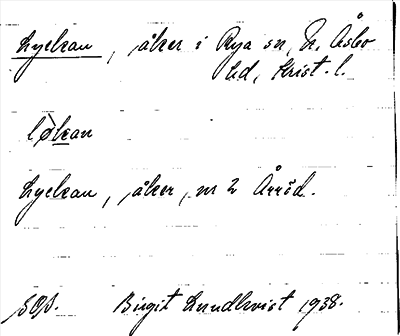 Lyckan, åker i Rya sn, N. Åsbo
hd, Krist. l.
løkan
Lyckan, åker, nr 2 Årröd.
Birgit Lundkvist 1938.